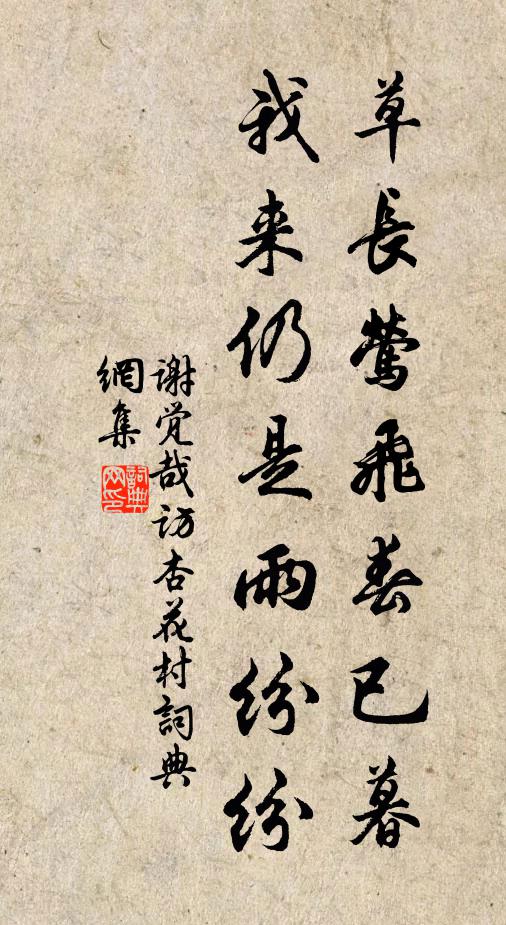 草長鶯飛春已暮
我来仍是雨紛紛
謝觉哉訪杏花村詞典
網集
詞典
网印